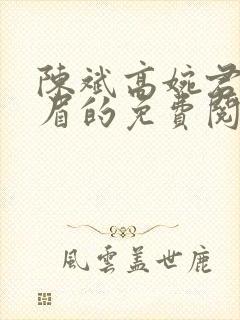 陳斌高婉君
眉的免費閱
風雲蓋世鹿